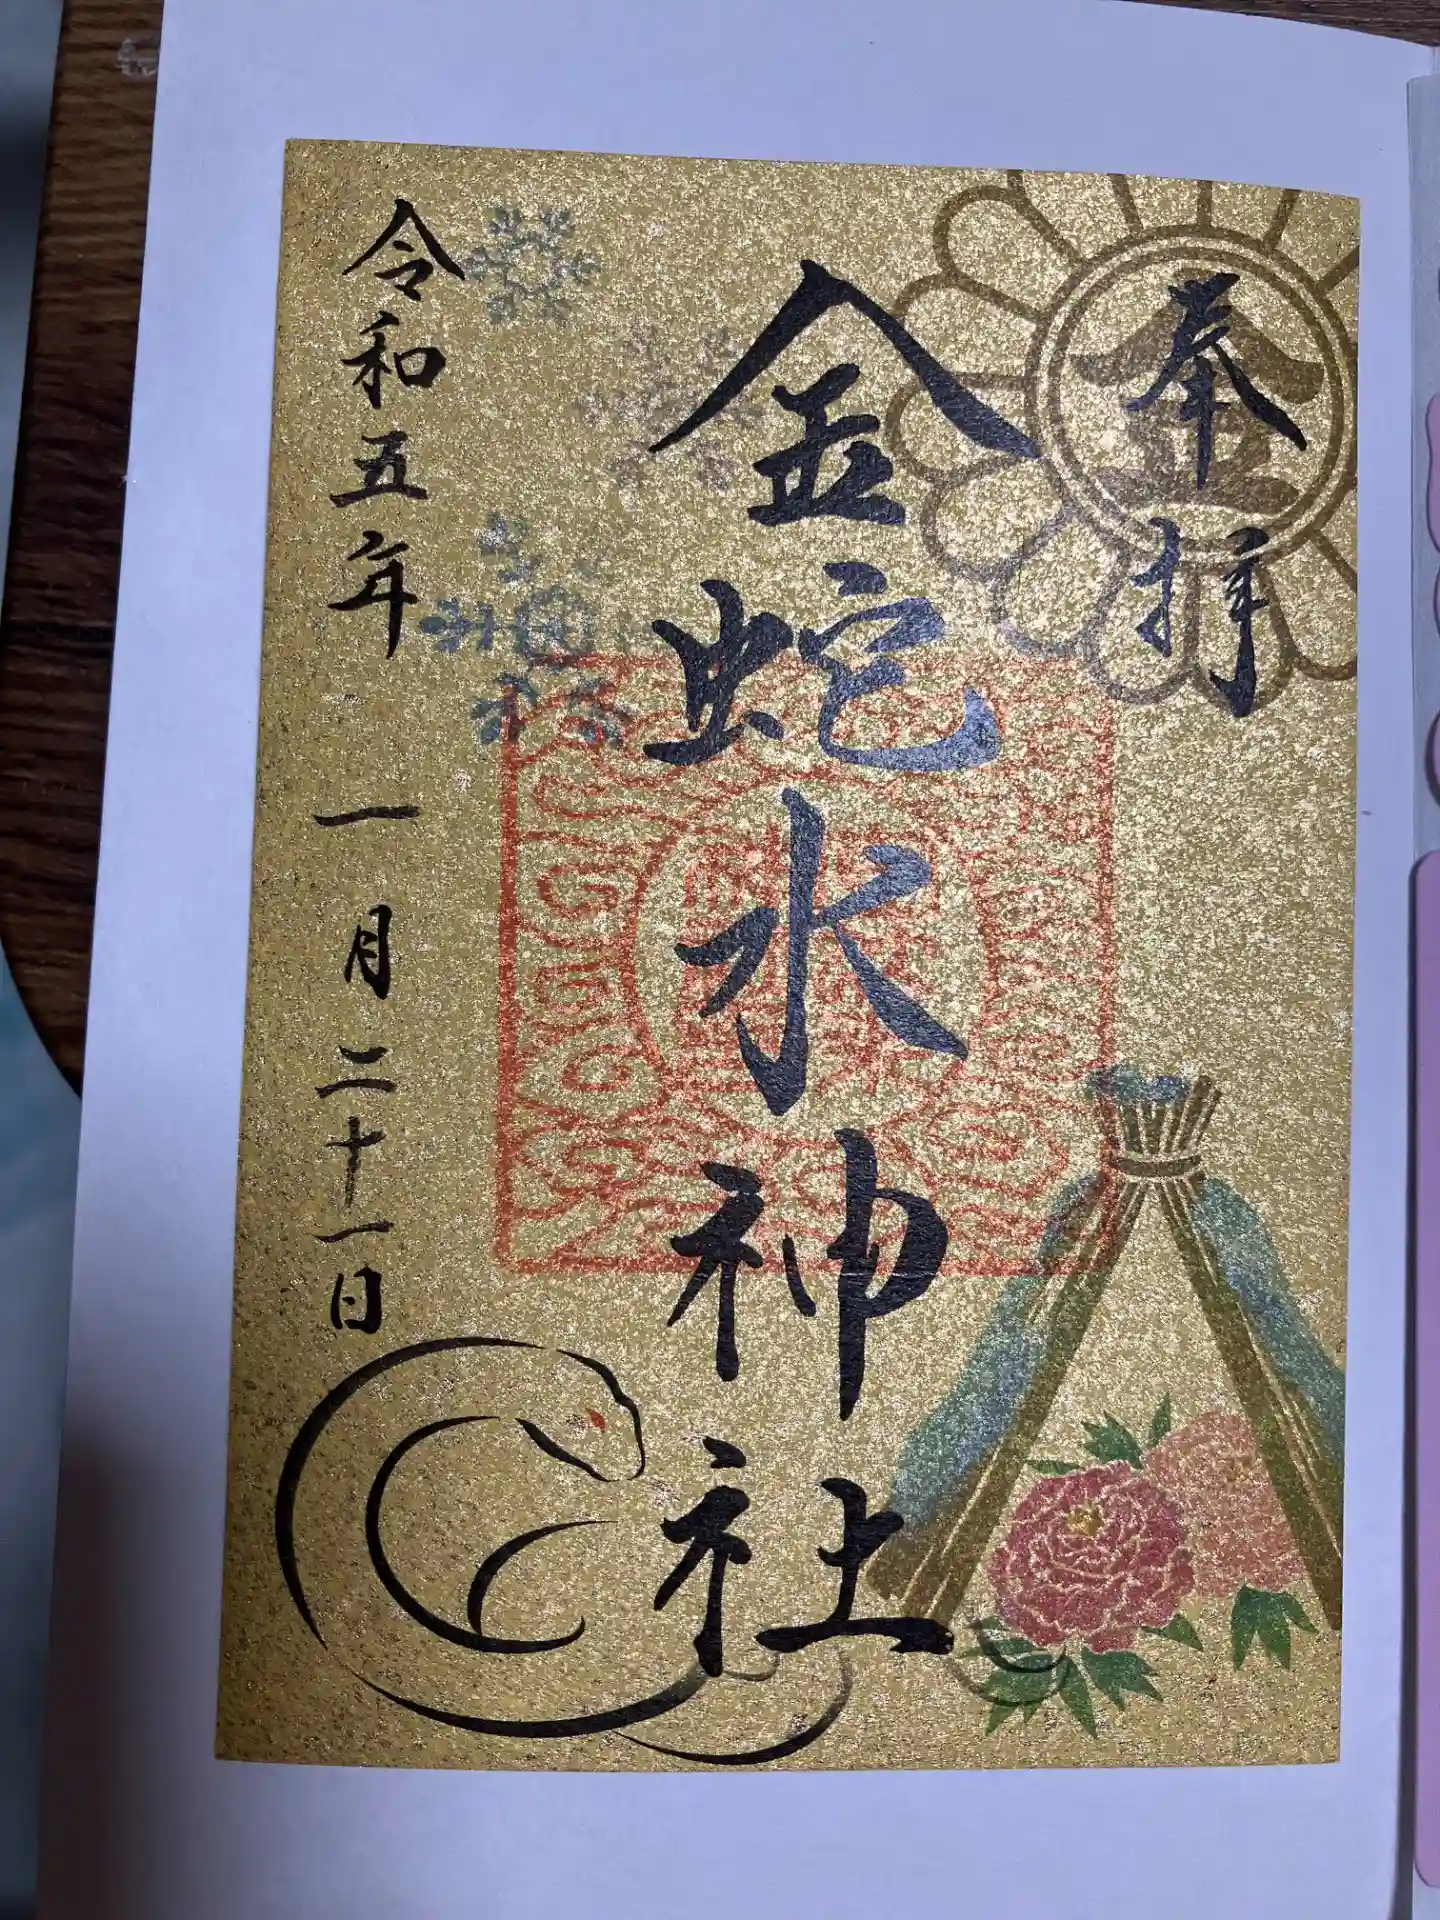 奉拝
金
金蛇水神社
令和五年一月二十一日